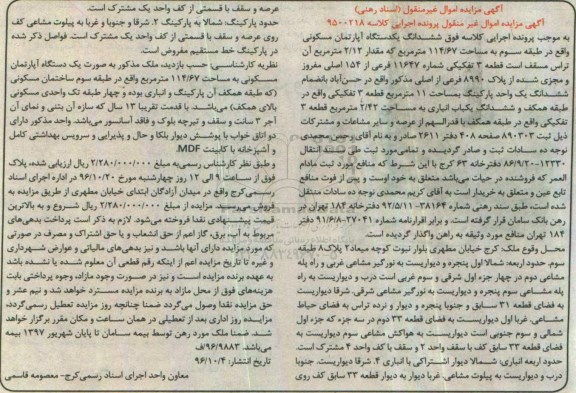 آگهی مزایده اموال غیرمنقول (اسناد رهنی)
آگهی مزایده اموال غیر منقول پرونده اجرایی کلاسه ۹۵۰۰۲۱۸
به موجب پرونده اجرایی کلاسه فوق ششدانگ یکدستگاه آپارتمان مسکونی
واقع در طبقه سوم به مساحت ۱۱۴/۶۷ مترمربع که مقدار ۲/۱۲ مترمربع آن
تراس مسقف است قطعه ۳ تفکیکی شماره ۱۱۶۴۷ فرعی از ۱۵۴ اصلی مفروز
و مجزی شده از پلاک ۸۹۹۰ فرعی از اصلی مذکور واقع در حسن‌آباد بانضمام
ششدانگ یک واحد پارکینگ بمساحت ۱۱ مترمربع قطعه ۳ تفکیکی واقع در
طبقه همکف و ششدانگ یکباب انباری به مساحت ۲/۴۲ مترمربع قطعه ۳
تفکیکی واقع در طبقه همکف با قدرالسهم از عرصه و سایر مشاعات و مشترکات
ذیل ثبت ۸۹۰۳۰۳ صفحه ۴۰۸ دفتر ۲۶۱۱ صادر و به نام آقای رحمن محمدی
توجه ده سادات ثبت و صادر گردیده و تمامی مورد ثبت طی سند انتقال
۱۲۳۳۰-۸۶/۹/۲۰ دفترخانه ۶۳ کرج با این شرط که منافع مورد ثبت مادام
العمر که فروشنده در حیات می‌باشد متعلق به خود اوست و پس از فوت منافع
تابع عین و متعلق به خریدار است به آقای کریم محمدی توجه ده سادات منتقل
شده است، طبق سند رهنی شماره ۳۸۱۶۴-۹۲/۵/۱۱ دفترخانه ۱۸۴ تهران در
رهن بانک سامان قرار گرفته است و برابر اقرارنامه شماره ۲۷۰۴۱-۹۱/۶/۸ دفتر
۱۸۴ تهران منافع مورد وثیقه به راهن واگذار گردیده است.
محل وقوع ملک: کرج خیابان مطهری بلوار نبوت کوچه میعاد۲ پلاک۸ طبقه
سوم. حدود اربعه: شمالا اول پنجره و دیواریست به نورگیر مشاعی غربی و راه پله
مشاعی دوم در چهار جزء اول شرقی و سوم غربی است درب و دیواریست به راه
پله مشاعی سوم پنجره و دیواریست به نورگیر مشاعی شرقی. شرقا دیواریست
به فضای قطعه ۳۱ سابق و جنوبا پنجره و دیوار و نرده تراس به فضای حیاط
مشاعی. غربا اول دیواریست به فضای قطعه ۳۳ دوم در سه جزء که جزء اول
شمالی و سوم جنوبی است دیواریست به هواکش مشاعی سوم دیواریست به
فضای قطعه ۳۳ سابق کف با سقف واحد ۲ و سقف با کف واحد ۴ مشترک است.
حدود اربعه انباری: شمالا دیوار اشتراکی با انباری ۴. شرقا دیواریست. جنوبا
درب و دیواریست به پیلوت مشاعی. غربا دیوار به دیوار قطعه ۳۳ سابق کف روی
عرصه و سقف با قسمتی از کف واحد یک مشترک است.
حدود پارکینگ: شمالا به پارکینگ ۲. شرقا و جنوبا و غربا به پیلوت مشاعی کف
روی عرصه و سقف با قسمتی از کف واحد یک مشترک است. فواصل ذکر شده
در پارکینگ خط مستقیم مفروض است.
نظریه کارشناسی: حسب بازدید، ملک مذکور به صورت یک دستگاه آپارتمان
مسکونی به مساحت ۱۱۴/۶۷ مترمربع واقع در طبقه سوم ساختمان مسکونی
(که طبقه همکف آن پارکینگ و انباری بوده و چهار طبقه تک واحدی مسکونی
بالای همکف) می‌باشد. با قدمت تقریبا ۱۳ سال که سازه آن بتنی و نمای آن
آجر ۳ سانت و سقف و تیرچه بلوک و فاقد آسانسور می‌باشد. واحد مذکور دارای
دو اتاق خواب با پوشش دیوار بلکا و حال و پذیرایی و سرویس بهداشتی کامل
و آشپزخانه با کابینت MDF.
و طبق نظر کارشناس رسمی به مبلغ ۲/۲۸۰/۰۰۰/۰۰۰ ریال ارزیابی شده، پلاک
فوق از ساعت ۹ الی ۱۲ روز چهارشنبه مورخ ۹۶/۱۰/۲۰ در اداره اجرای اسناد
رسمی کرج واقع در میدان آزادگان ابتدای خیابان مطهری از طریق مزایده به
فروش می‌رسد. مزایده از مبلغ ۲/۲۸۰/۰۰۰/۰۰۰ ریال شروع و به بالاترین
قیمت پیشنهادی نقدا فروخته می‌شود. لازم به ذکر است پرداخت بدهی‌های
مربوط به آب، برق، گاز اعم از حق انشعاب و یا حق اشتراک و مصرف در صورتی
که مورد مزایده دارای آنها باشد و نیز بدهی‌های مالیاتی و عوارض شهرداری
و غیره تا تاریخ مزایده اعم از اینکه رقم قطعی آن معلوم شده یا نشده باشد
به عهده برنده مزایده است و نیز در صورت وجود مازاد، وجوه پرداختی بابت
هزینه‌های فوق از محل مازاد به برنده مزایده مسترد خواهد شد و نیم عشر و
حق مزایده نقدا وصول می‌گردد ضمنا چنانچه روز مزایده تعطیل رسمی گردد،
مزایده روز اداری بعد از تعطیلی در همان ساعت و مکان مقرر برگزار خواهد
شد. ضمنا ملک مورد رهن توسط بیمه سامان تا پایان شهریور ۱۳۹۷ بیمه
می‌باشد. ۹۶/۹۸۸۳/ف
تاریخ انتشار: ۹۶/۱۰/۴
معاون واحد اجرای اسناد رسمی کرج- معصومه قاسمی